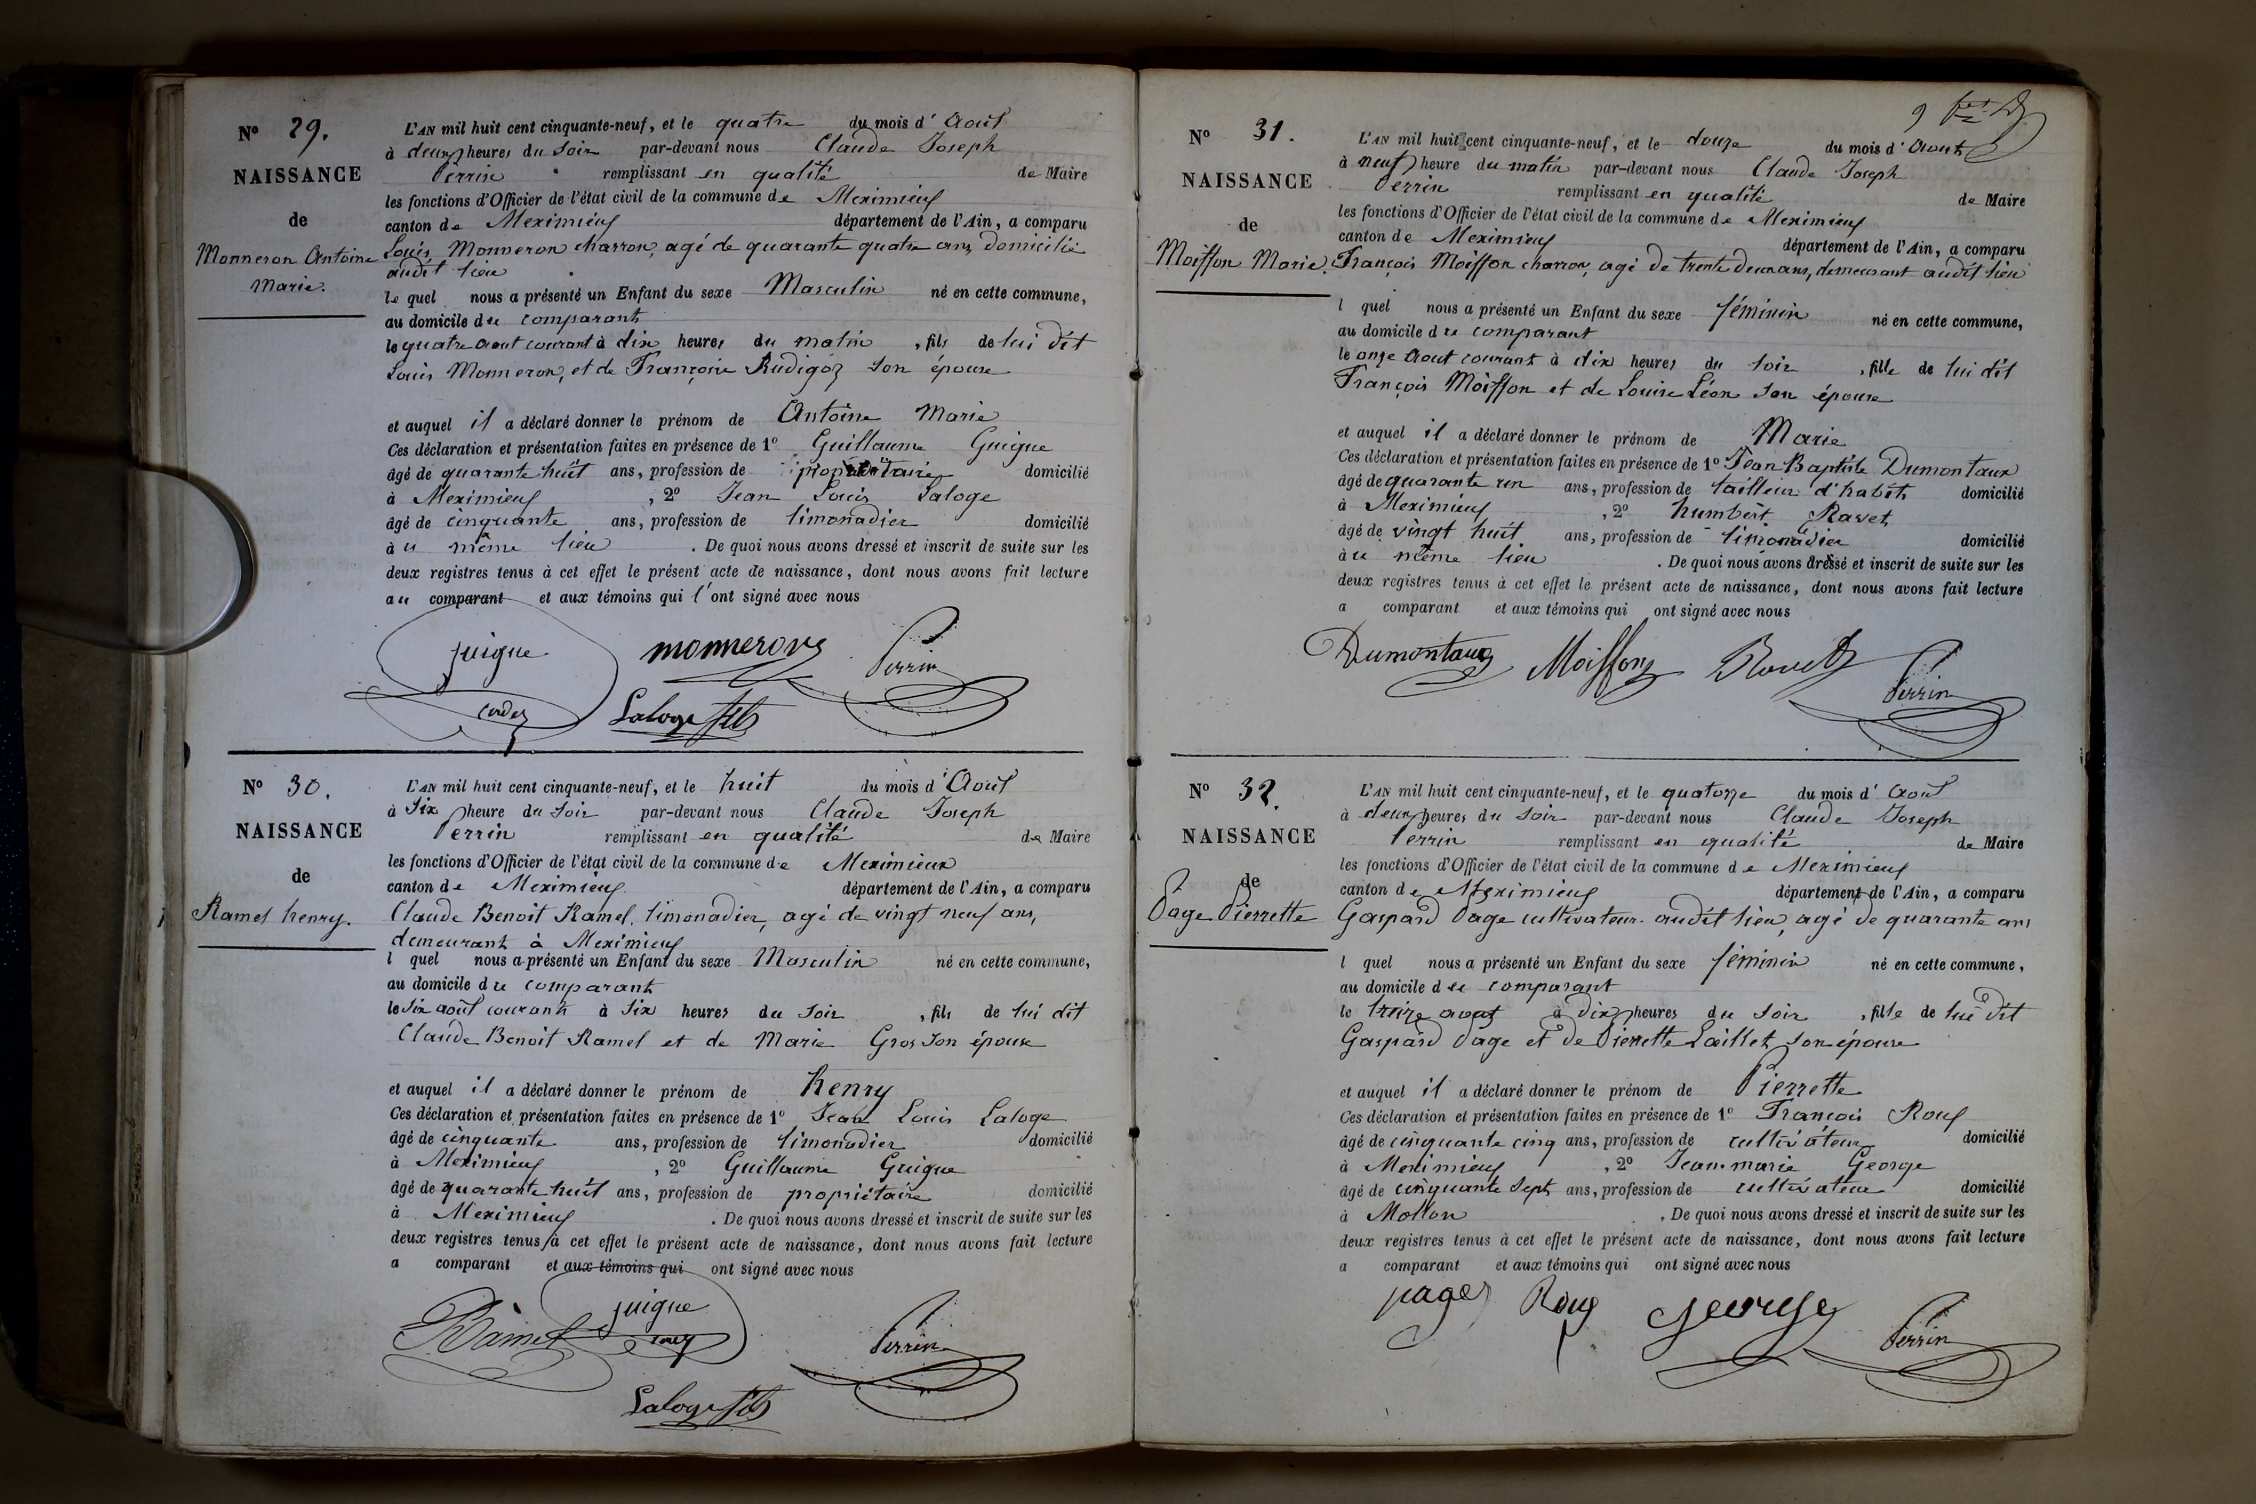 Nº 29.
NAISSANCE
de
Monneron Antoine
Marie.
L'AN mil huit cent cinquante-neuf, et le quatre du mois d'Août
à deux heures du soir par-devant nous Claude Joseph
Perrin remplissant en qualité de Maire
les fonctions d'Officier de l'état civil de la commune de Meximieux
canton de Meximieux département de l'Ain, a comparu
Louis Monneron charron, agé de quarante quatre ans, domicilié
audit lieu
le quel nous a présenté un Enfant du sexe Masculin né en cette commune,
au domicile du comparant
le quatre aout courant à dix heures du matin, fils de lui dit
Louis Monneron, et de Françoise Rudigoz son épouse
et auquel il a déclaré donner le prénom de Antoine Marie
Ces déclaration et présentation faites en présence de 1º Guillaume Guigue
âgé de quarante huit ans, profession de propriétaire domicilié
à Meximieux, 2º Jean Louis Laloge
âgé de cinquante ans, profession de limonadier domicilié
à u même lieu. De quoi nous avons dressé et inscrit de suite sur les
deux registres tenus à cet effet le présent acte de naissance, dont nous avons fait lecture
au comparant et aux témoins qui l'ont signé avec nous
guigue monneron Perrin
Laloge fils
Nº 30.
NAISSANCE
de
Ramel henry.
L'AN mil huit cent cinquante-neuf, et le huit du mois d'Août
à Six heure du soir par-devant nous Claude Joseph
Perrin remplissant en qualité de Maire
les fonctions d'Officier de l'état civil de la commune de Meximieux
canton de Meximieux département de l'Ain, a comparu
Claude Benoit Ramel, limonadier, agé de vingt neuf ans,
demeurant à Meximieux
l quel nous a présenté un Enfant du sexe Masculin né en cette commune,
au domicile du comparant
le six août courant à six heures du soir, fils de lui dit
Claude Benoit Ramel et de Marie Gros son épouse
et auquel il a déclaré donner le prénom de henry
Ces déclaration et présentation faites en présence de 1º Jean Louis Laloge
âgé de cinquante ans, profession de limonadier domicilié
à Meximieux, 2º Guillaume Guigue
âgé de quarante huit ans, profession de propriétaire domicilié
à Meximieux. De quoi nous avons dressé et inscrit de suite sur les
deux registres tenus à cet effet le présent acte de naissance, dont nous avons fait lecture
a comparant et aux témoins qui ont signé avec nous
Ramel guigue Perrin
Laloge fils
9
Nº 31.
NAISSANCE
de
Moiffon Marie.
L'AN mil huit cent cinquante-neuf, et le douze du mois d'Aout
à neuf heure du matin par-devant nous Claude Joseph
Perrin remplissant en qualité de Maire
les fonctions d'Officier de l'état civil de la commune de Meximieux
canton de Meximieux département de l'Ain, a comparu
François Moiffon charron, agé de trente deux ans, demeurant audit lieu
l quel nous a présenté un Enfant du sexe féminin né en cette commune,
au domicile du comparant
le onze Aout courant à dix heures du soir, fille de lui dit
François Moiffon et de Louise Léon son épouse
et auquel il a déclaré donner le prénom de Marie
Ces déclaration et présentation faites en présence de 1º Jean Baptiste Dumontaux
âgé de quarante un ans, profession de tailleur d'habits domicilié
à Meximieux, 2º humbert Ravet
âgé de vingt huit ans, profession de limonadier domicilié
à u même lieu. De quoi nous avons dressé et inscrit de suite sur les
deux registres tenus à cet effet le présent acte de naissance, dont nous avons fait lecture
a comparant et aux témoins qui ont signé avec nous
Dumontaux Moiffon Ravet Perrin
Nº 32.
NAISSANCE
de
Page Pierrette
L'AN mil huit cent cinquante-neuf, et le quatorze du mois d'Août
à deux heures du soir par-devant nous Claude Joseph
Perrin remplissant en qualité de Maire
les fonctions d'Officier de l'état civil de la commune de Meximieux
canton de Meximieux département de l'Ain, a comparu
Gaspard Page cultivateur audit lieu, agé de quarante ans
l quel nous a présenté un Enfant du sexe féminin né en cette commune,
au domicile du comparant
le treize aout à dix heures du soir, fille de lui dit
Gaspard Page et de Pierrette Laillet son épouse
et auquel il a déclaré donner le prénom de Pierrette
Ces déclaration et présentation faites en présence de 1º François Roux
âgé de cinquante cinq ans, profession de cultivateur domicilié
à Meximieux, 2º Jean-marie George
âgé de cinquante sept ans, profession de cultivateur domicilié
à Mollon. De quoi nous avons dressé et inscrit de suite sur les
deux registres tenus à cet effet le présent acte de naissance, dont nous avons fait lecture
a comparant et aux témoins qui ont signé avec nous
page Roux george Perrin